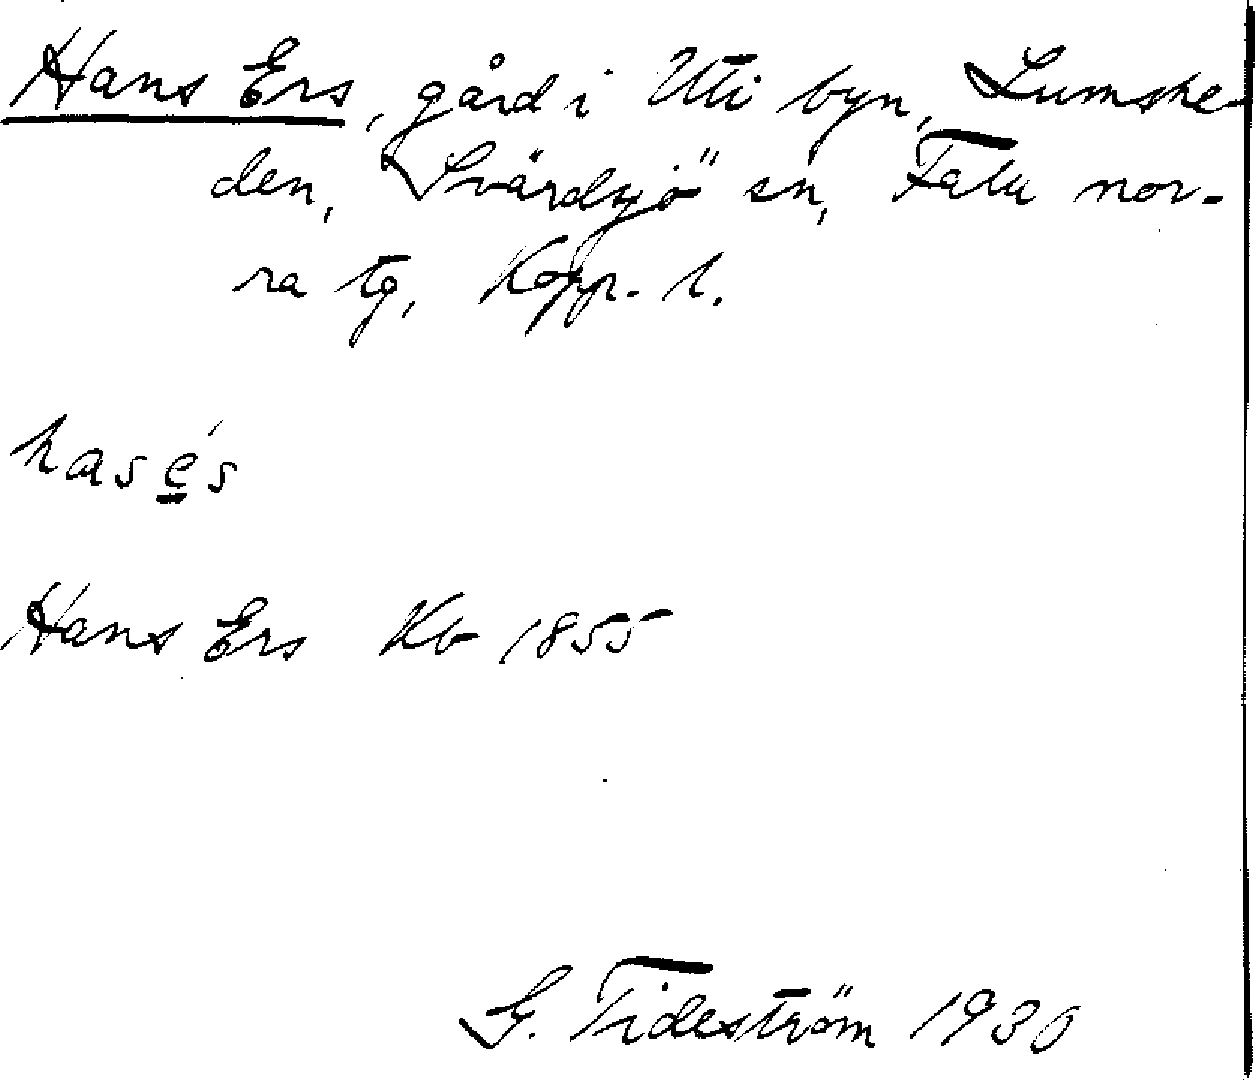 Hans Ers, gård i Uti byn, Lumshe-
den, Svärdsjö sn, Falu nor-
ra tg, Kopp. l.
hasés
Hans Ers Kb 1855
G. Tideström 1930